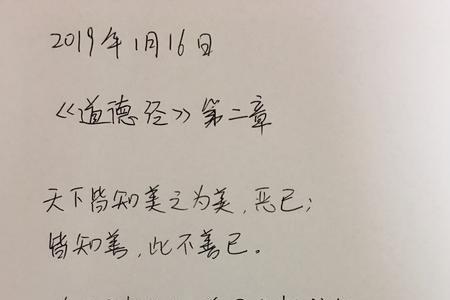 2019年1月16日
《道德经》第二章
天下皆知美之为美，恶已；
皆知善，此不善已。